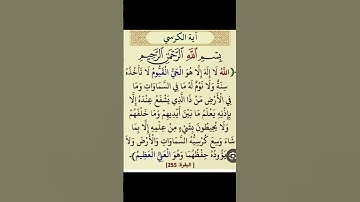 آية الكرسي
بِسْمِ اللَّهِ الرَّحْمَنِ الرَّحِيمِ
(اللَّهُ لَا إِلَهَ إِلَّا هُوَ الْحَيُّ الْقَيُّومُ لَا تَأْخُذُهُ
سِنَةٌ وَلَا نَوْمٌ لَهُ مَا فِي السَّمَاوَاتِ وَمَا
فِي الْأَرْضِ مَنْ ذَا الَّذِي يَشْفَعُ عِنْدَهُ إِلَّا
بِإِذْنِهِ يَعْلَمُ مَا بَيْنَ أَيْدِيهِمْ وَمَا خَلْفَهُمْ
وَلَا يُحِيطُونَ بِشَيْءٍ مِنْ عِلْمِهِ إِلَّا بِمَا
شَاءَ وَسِعَ كُرْسِيُّهُ السَّمَاوَاتِ وَالْأَرْضَ وَلَا
يَؤُودُهُ حِفْظُهُمَا وَهُوَ الْعَلِيُّ الْعَظِيمُ).
[البقرة: 255]